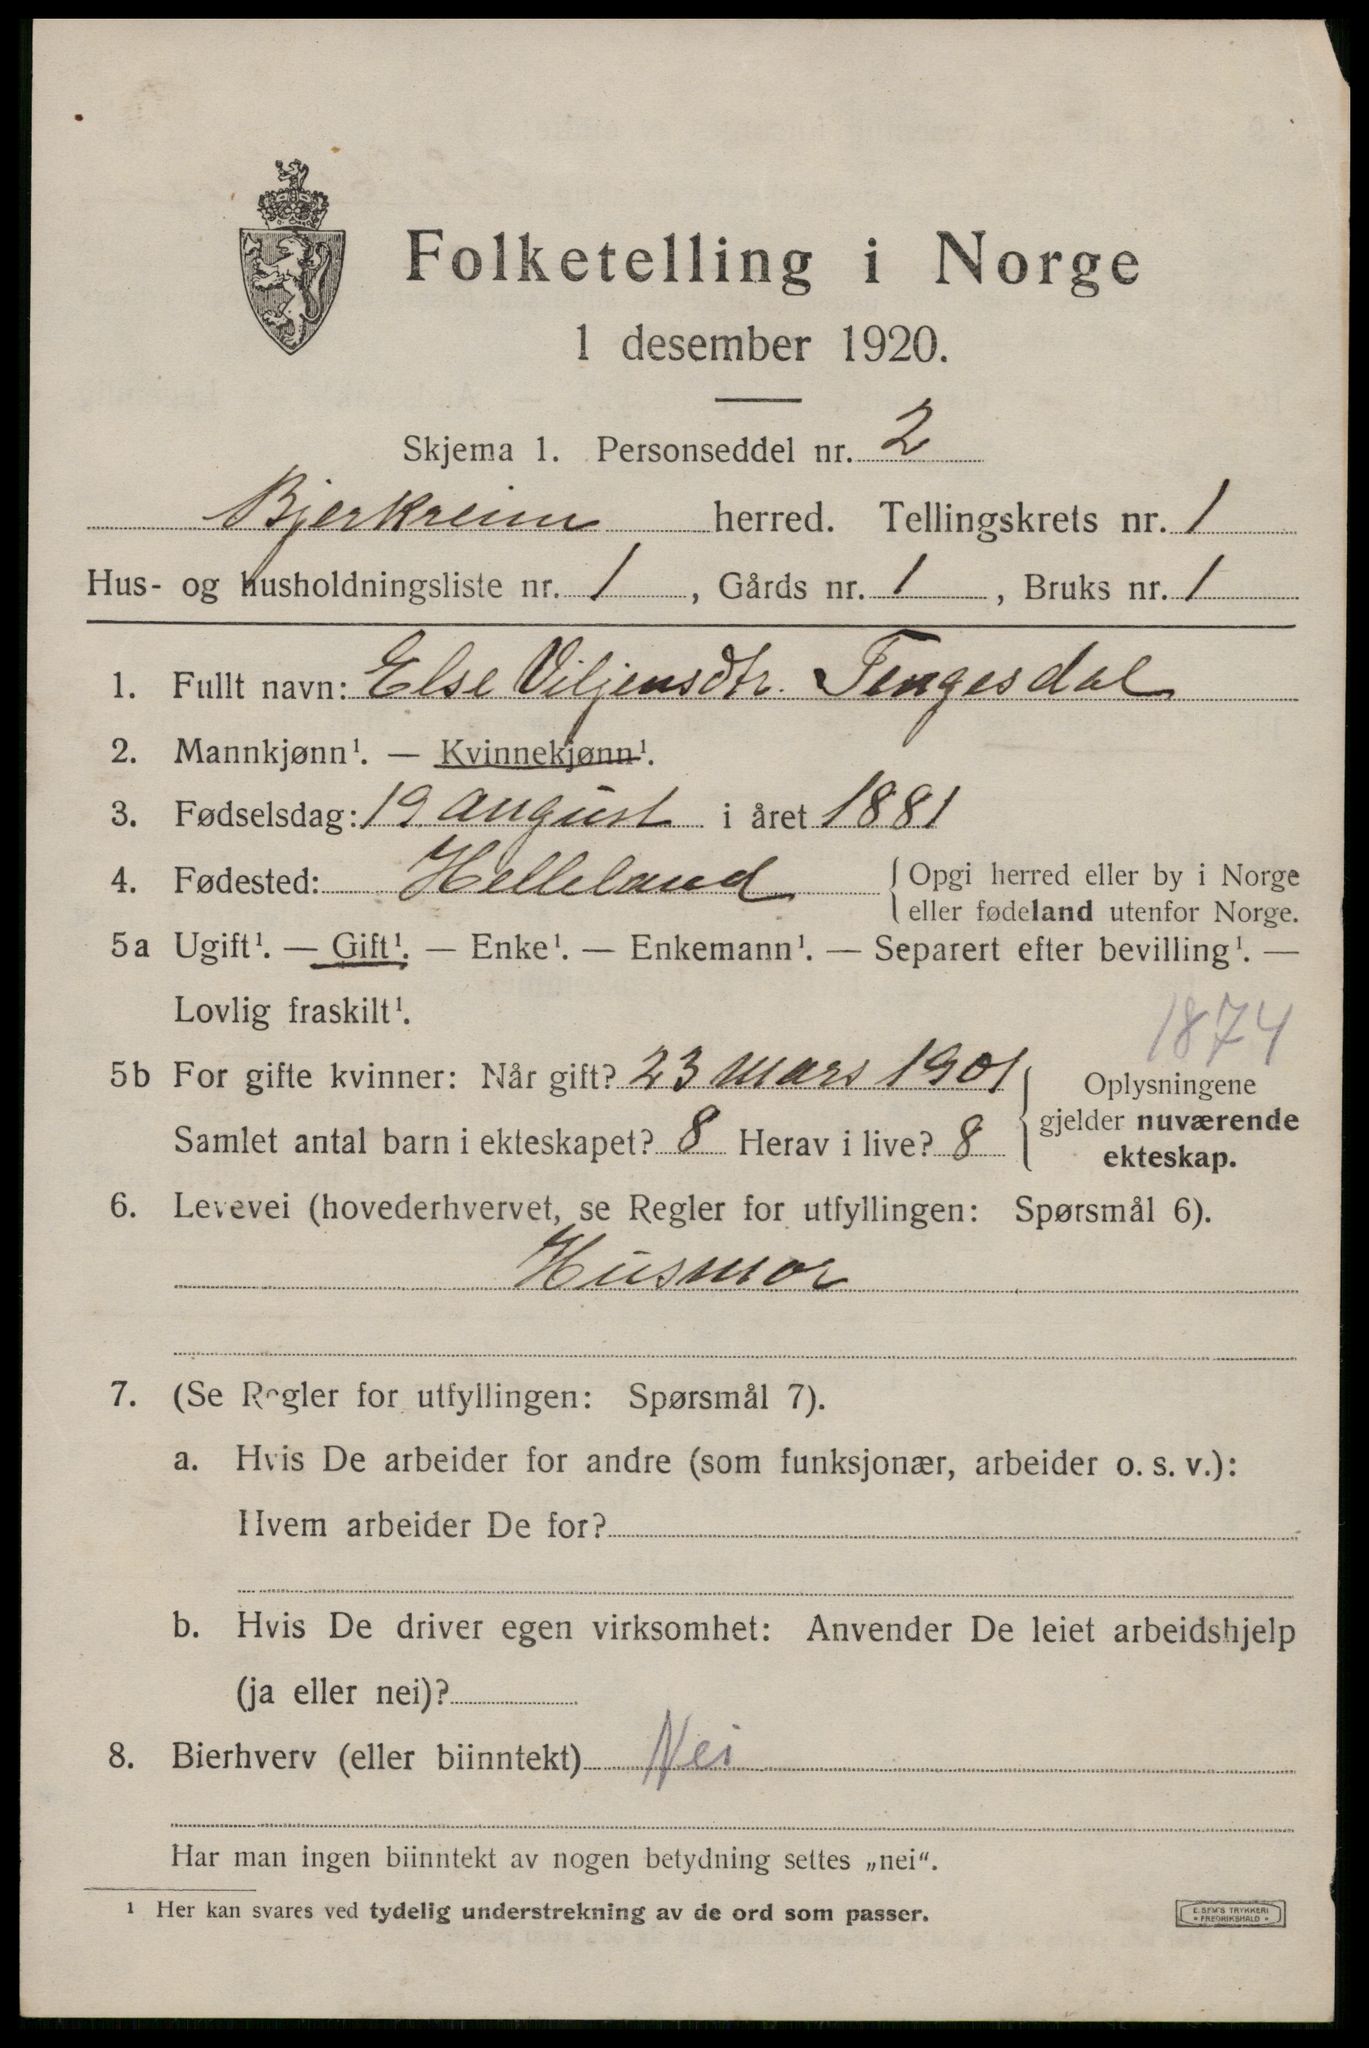 Folketelling i Norge
1 desember 1920.
Skjema 1. Personseddel nr. 2
Bjerkreim herred. Tellingskrets nr. 1
Hus- og husholdningsliste nr. 1, Gårds nr. 1, Bruks nr. 1
1. Fullt navn: Else Viljensdtr. Tengesdal
2. Mannkjønn¹. — Kvinnekjønn¹.
3. Fødselsdag: 19 august i året 1881
4. Fødested: Helleland { Opgi herred eller by i Norge
eller fødeland utenfor Norge.
5a Ugift¹. — Gift¹. — Enke¹. — Enkemann¹. — Separert efter bevilling¹. —
Lovlig fraskilt¹.
1874
5b For gifte kvinner: Når gift? 23 mars 1901
Samlet antal barn i ekteskapet? 8 Herav i live? 8
{ Oplysningene
gjelder nuværende
ekteskap.
6. Levevei (hovederhvervet, se Regler for utfyllingen: Spørsmål 6).
Husmor
7. (Se Regler for utfyllingen: Spørsmål 7).
a. Hvis De arbeider for andre (som funksjonær, arbeider o. s. v.):
Hvem arbeider De for?
b. Hvis De driver egen virksomhet: Anvender De leiet arbeidshjelp
(ja eller nei)?
8. Bierhverv (eller biinntekt) Nei
Har man ingen biinntekt av nogen betydning settes „nei".
¹ Her kan svares ved tydelig understrekning av de ord som passer.
E. SEM'S TRYKKERI
• FREDRIKSHALD •